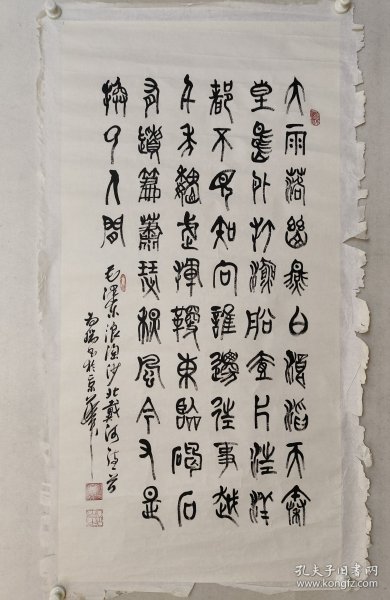 大雨落幽燕白浪滔天秦
皇島外打漁船壹片汪洋
都不見知向誰邊往事越
千年魏武揮鞭東臨碣石
有遺篇蕭瑟秋風今又是
換了人間
毛澤東浪淘沙北戴河
書於京華
孔夫子旧书网